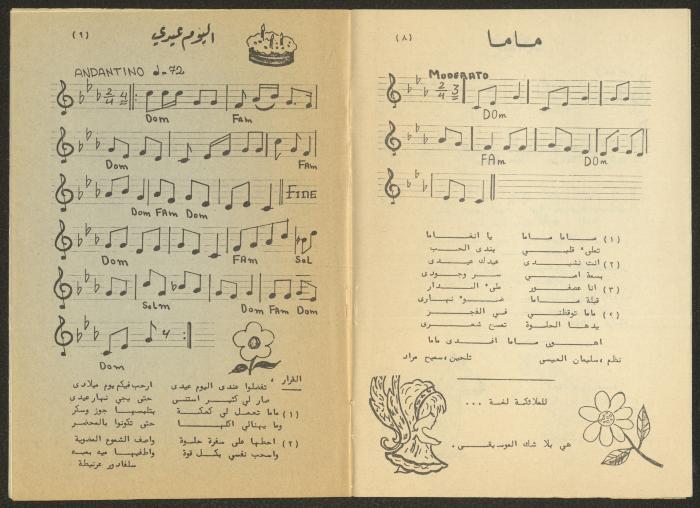 ماما
(٨)
MODERATO
2/4 3
DOm
FAm DOm
(١) ماما ماما يا انغاما
تملي قلبي بندى الحب
(٢) انت نشيدي عيدك عيدي
بسمة امي سر وجودي
(٣) انا عصفور ملء الدار
قبلة ماما ضوء نهاري
(٤) ماما توقظني في الفجر
يدها الحلوة تمسح شعري
اهوى ماما افدي ماما
نظم ، سليمان العيسى تلحين ، سميح مراد
للملائكة لغة ...
هي بلا شك الموسيقى .
اليوم عيدي
(٩)
ANDANTINO ♩=72
2/4 4
Dom FAm
Dom FAm
Dom FAm Dom FINE
Dom FAm SoL
SoLm Dom FAm Dom
Dom
القرار ، تفضلوا عندي اليوم عيدي ارحب فيكم يوم ميلادي
صار لي كثير استنى حتى يجي نهار عيدي
(١) ماما تعمل لي كعكة بتلبسها جوز وسكر
وما يهنالي اكلها حتى تكونوا بالمحضر
(٢) احطها على سفرة حلوة واصف الشموع المضوية
واسحب نفسي بكل قوة واطفيها ميه بميه
سلفادور عرنيطة